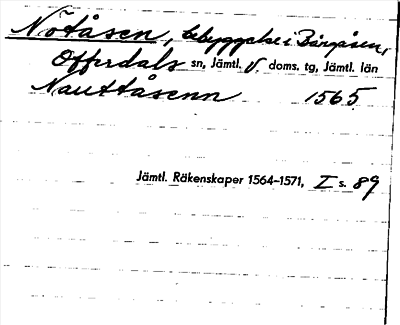 Nötåsen, bebyggelse i Bångåsen,
Offerdals sn, Jämtl. V. doms. tg, Jämtl. län
Nauttåsenn 1565
Jämtl. Räkenskaper 1564-1571, I s. 89